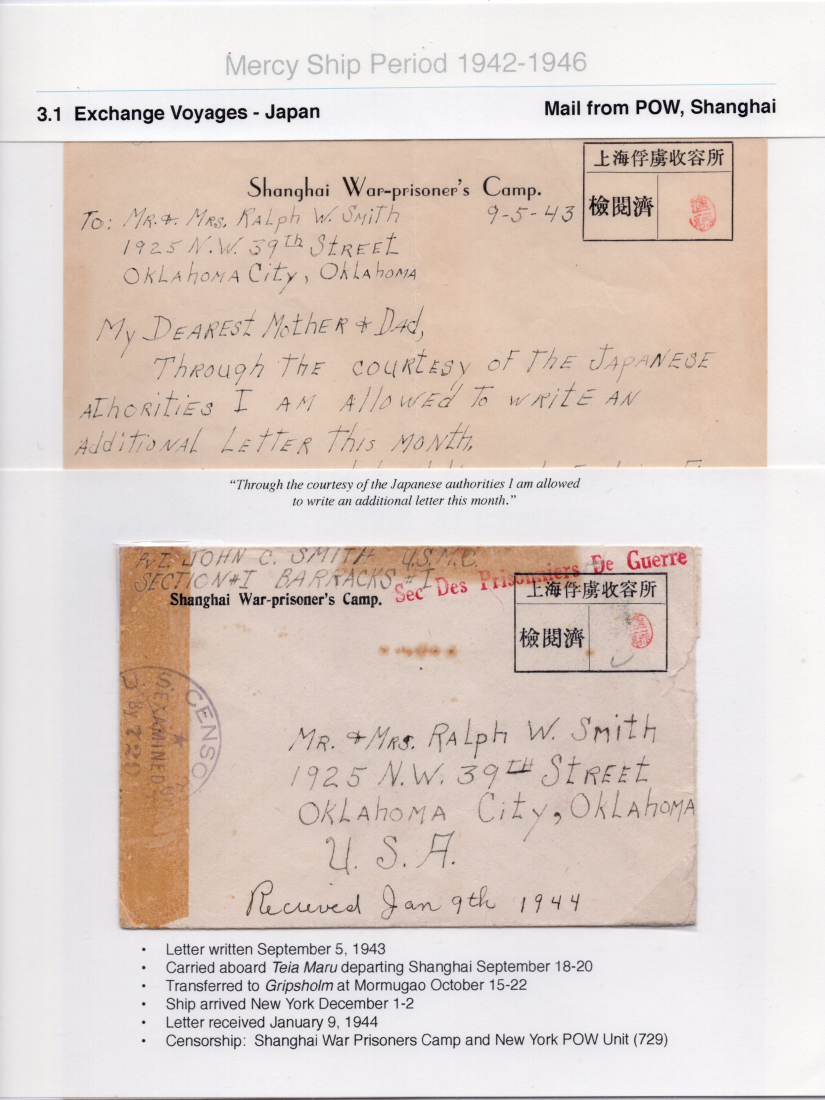 Mercy Ship Period 1942-1946
3.1 Exchange Voyages - Japan
Mail from POW, Shanghai
上海俘虜收容所
檢閱濟
Shanghai War-prisoner's Camp.
9-5-43
To: Mr. & Mrs. Ralph W. Smith
1925 N.W. 39th Street
Oklahoma City, Oklahoma
My Dearest Mother & Dad,
Through the courtesy of the Japanese
athorities I am allowed to write an
additional letter this month.
“Through the courtesy of the Japanese authorities I am allowed
to write an additional letter this month.”
Pvt. John C. Smith U.S.M.C.
Section #I Barracks #I
Shanghai War-prisoner's Camp.
Sec Des Prisonniers De Guerre
上海俘虜收容所
檢閱濟
CENSO
EXAMINED
By 729
Mr. & Mrs. Ralph W. Smith
1925 N.W. 39th Street
Oklahoma City, Oklahoma
U. S. A.
Recieved Jan 9th 1944
• Letter written September 5, 1943
• Carried aboard Teia Maru departing Shanghai September 18-20
• Transferred to Gripsholm at Mormugao October 15-22
• Ship arrived New York December 1-2
• Letter received January 9, 1944
• Censorship: Shanghai War Prisoners Camp and New York POW Unit (729)